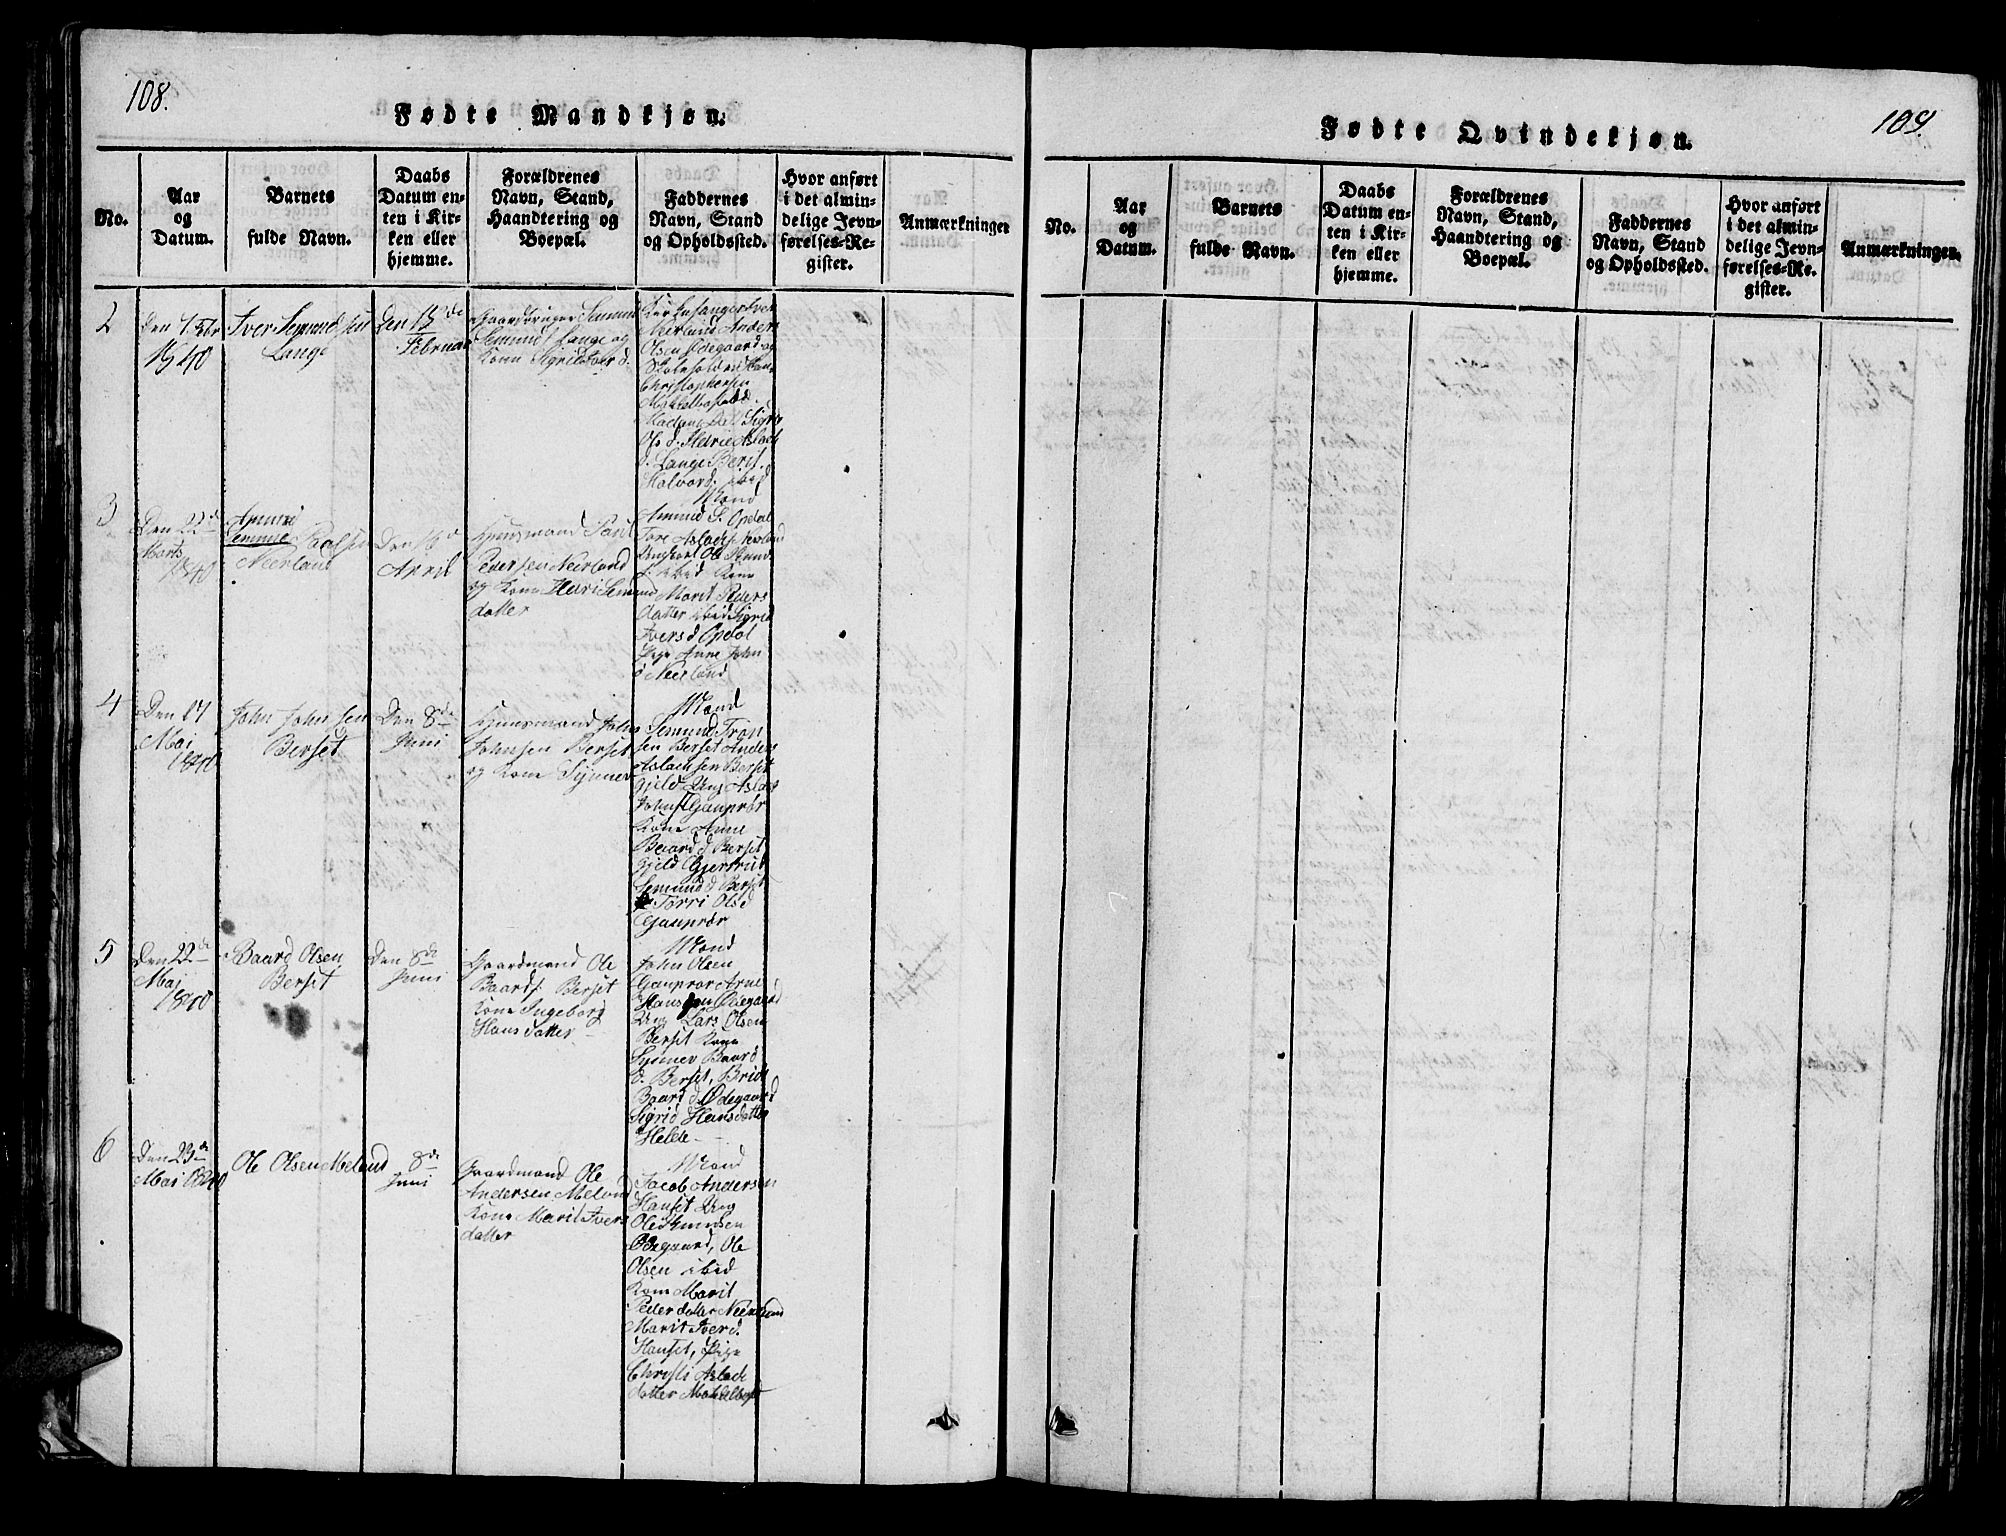 108.
Fødte Mandkjøn.
No.
Aar
og
Datum.
Barnets
fulde Navn.
Daabs
Datum en-
ten i Kir-
ken eller
hjemme.
Forældrenes
Navn, Stand,
Haandtering og
Boepæl.
Faddernes
Navn, Stand
og Opholdssted.
Hvor anført
i det almin-
delige Jevn-
førelses-Re-
gister.
Anmærkninger
2
Den
1840
Iver Semundsen
Lange
Den 13de
Februar
Semund
Lange og
Kone Sigrid
Iver
Neerland Anders
Olsen Ødegaard og
Christophersen
Sigri
Ols d.
d. Lange Berit
Halvord. ibid
3
Den 22de
Marts
1840
Neerland
Den
April
Huusmand Paul
Pedersen Neerland
og Kone Semund
datter
Mænd
Amund S. Opdal
Tore Aslachs Neerland
Ungkarl Ole
ibid Kone
Marit Peders
datter ibid Sigrid
Ivers d Opdal
Pige Anne John
d Neerland
4
Den 17
Mai
1840
John Johnsen
Berset
Den 8de
Juni
Huusmand John
Johnsen Berset
og Kone Synnev
Mænd
Semund Tron
sen Berset Anders
Aslachsen Berset
gjeld Ung Aslac
Johns
Kone Anne
Baard d. Berset
gjeld Gjertrud
Semund d Berset
Torri Olsd
5
Den 22de
Mai
1840
Baard Olsen
Berset
Den 8de
Juni
Gaardmand Ole
Baards. Berset
Kone Ingeborg
Hansdatter
Mænd
John Olsen
Arne
Hansen Ødegaard
Ung Lars Olsen
Berset Kone
Synnev Baard
d. Berset, Brit
Baard d Ødegaard
Sigrid Hansdatter
Helde
6
Den 23de
Mai 1840
Ole Olsen Meland
8de
Juni
Gaardmand Ole
Andersen Meland
Kone Marit Ivers
datter
Mænd
Jacob Andersen
Hauset Ung
Ole
Ole
Olsen ibid
Kone Marit
Peder datter Neerland
Marit Iver d.
Hauset, Pige
Christi Aslack
datter
109.
Fødte Qvindekjøn.
No.
Aar
og
Datum.
Barnets
fulde Navn.
Daabs
Datum en-
ten i Kir-
ken eller
hjemme.
Forældrenes
Navn, Stand,
Haandtering og
Boepæl.
Faddernes
Navn, Stand
og Opholdssted.
Hvor anført
i det almin-
delige Jevn-
førelses-Re-
gister.
Anmærkninger.